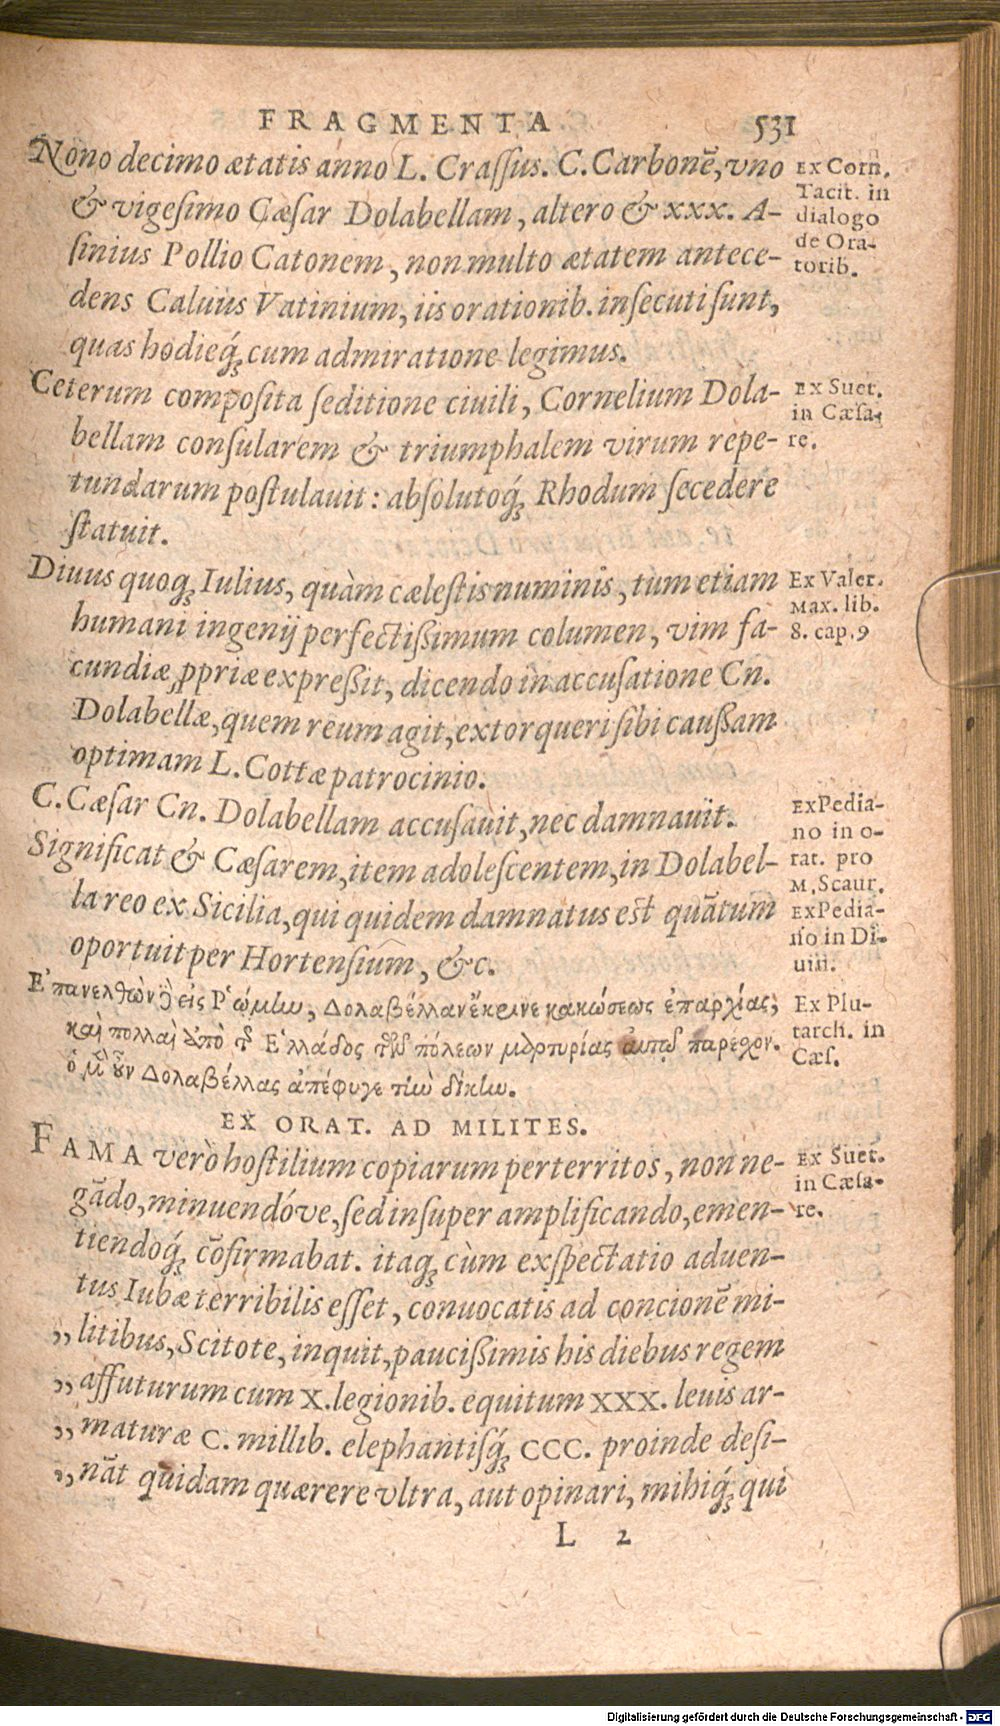 FRAGMENTA 531
Nono decimo ætatis anno L. Craſſus. C. Carbonē, vno
& vigeſimo Cæſar Dolabellam, altero & xxx. A-
ſinius Pollio Catonem, non multo ætatem antece-
dens Caluus Vatinium, iis orationib. inſecuti ſunt,
quas hodieq́ꝫ cum admiratione legimus.
Ex Corn.
Tacit. in
dialogo
de Ora-
torib.
Ceterum compoſita ſeditione ciuili, Cornelium Dola-
bellam conſularem & triumphalem virum repe-
tundarum poſtulauit: abſolutoq́ꝫ Rhodum ſecedere
ſtatuit.
Ex Suet.
in Cæſa-
re.
Diuus quoqꝫ Iulius, quàm cæleſtis numinis, tum etiam
humani ingenij perfectißimum columen, vim fa-
cundiæ ꝓpriæ expreßit, dicendo in accuſatione Cn.
Dolabellæ, quem reum agit, extorqueri ſibi cauſſam
optimam L. Cottæ patrocinio.
Ex Valer.
Max. lib.
8. cap. 9
C. Cæſar Cn. Dolabellam accuſauit, nec damnauit.
Significat & Cæſarem, item adoleſcentem, in Dolabel-
la reo ex Sicilia, qui quidem damnatus est quātum
oportuit per Hortenſium, &c.
Ex Pedia-
no in o-
rat. pro
M. Scaur.
Ex Pedia-
no in Di-
uin.
Ἐπανελθὼν δ εἰς Ῥώμην, Δολαβέλλαν ἔκρινε κακώσεως ἐπαρχίας,
καὶ πολλαὶ ἀπὸ τ Ἑλλάδος τῶν πόλεων μαρτυρίας αὐτῷ παρέχον.
ὁ μ οὖν Δολαβέλλας ἀπέφυγε τὴν δίκην.
Ex Plu-
tarch. in
Cæſ.
EX ORAT. AD MILITES.
FAMA verò hoſtilium copiarum perterritos, non ne-
gādo, minuendóve, ſed inſuper amplificando, emen-
tiendoq́ꝫ cōfirmabat. itaqꝫ cùm exſpectatio aduen-
tus Iubæ terribilis eſſet, conuocatis ad concionē mi-
„ litibus, Scitote, inquit, paucißimis his diebus regem
„ affuturum cum X. legionib. equitum XXX. leuis ar-
„ maturæ C. millib. elephantiſq́ꝫ CCC. proinde deſi-
„ nāt quidam quærere vltra, aut opinari, mihiq́ꝫ qui
Ex Suet.
in Cæſa-
re.
L 2
Digitalisierung gefördert durch die Deutsche Forschungsgemeinschaft - DFG